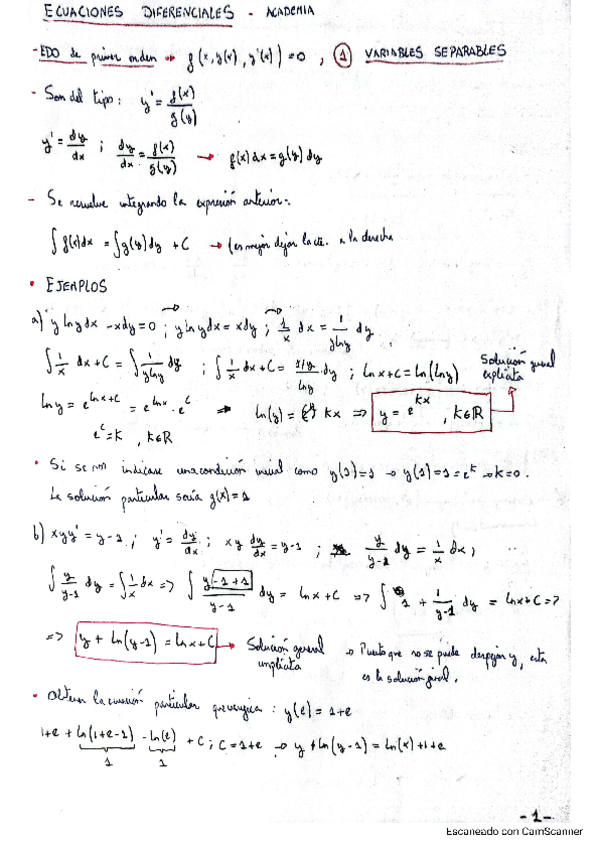 ECUACIONES DIFERENCIALES - ACADEMIA
- EDO de primer orden → f(x, y(x), y'(x)) = 0 , ① VARIABLES SEPARABLES
- Son del tipo: y' = f(x)/g(y)
y' = dy/dx ; dy/dx = f(x)/g(y) → f(x)dx = g(y)dy
- Se resuelve integrando la expresión anterior:
∫f(x)dx = ∫g(y)dy + C → (es mejor dejar la cte. a la derecha
• EJEMPLOS
a) y lny dx - xdy = 0 ; y lny dx = xdy ; 1/x dx = 1/ylny dy
∫1/x dx + C = ∫1/ylny dy ; ∫1/x dx + C = ∫ 1/y/lny dy ; lnx + C = ln(lny)
Solución general explícita
lny = e^(lnx+C) = e^lnx · e^C → ln(y) = kx ⇒ y = e^kx , k∈R
e^C = K , K∈R
• Si se nos indicase una condición inicial como y(1)=1 → y(1)=1=e^k → k=0.
La solución particular sería y(x)=1
b) xyy' = y-1 ; y' = dy/dx ; xy dy/dx = y-1 ; y/y-1 dy = 1/x dx ;
∫ y/y-1 dy = ∫1/x dx => ∫ y-1+1/y-1 dy = lnx + C => ∫ 1 + 1/y-1 dy = lnx + C =>
=> y + ln(y-1) = lnx + C → Solución general implícita → Puesto que no se puede despejar y, esta
es la solución gral.
• Obtener la particular que verifica : y(e) = 1+e
1+e + ln(1+e-1) - ln(e) + C ; C = 1+e → y + ln(y-1) = ln(x) + 1+e
1 1
-1-
Escaneado con CamScanner